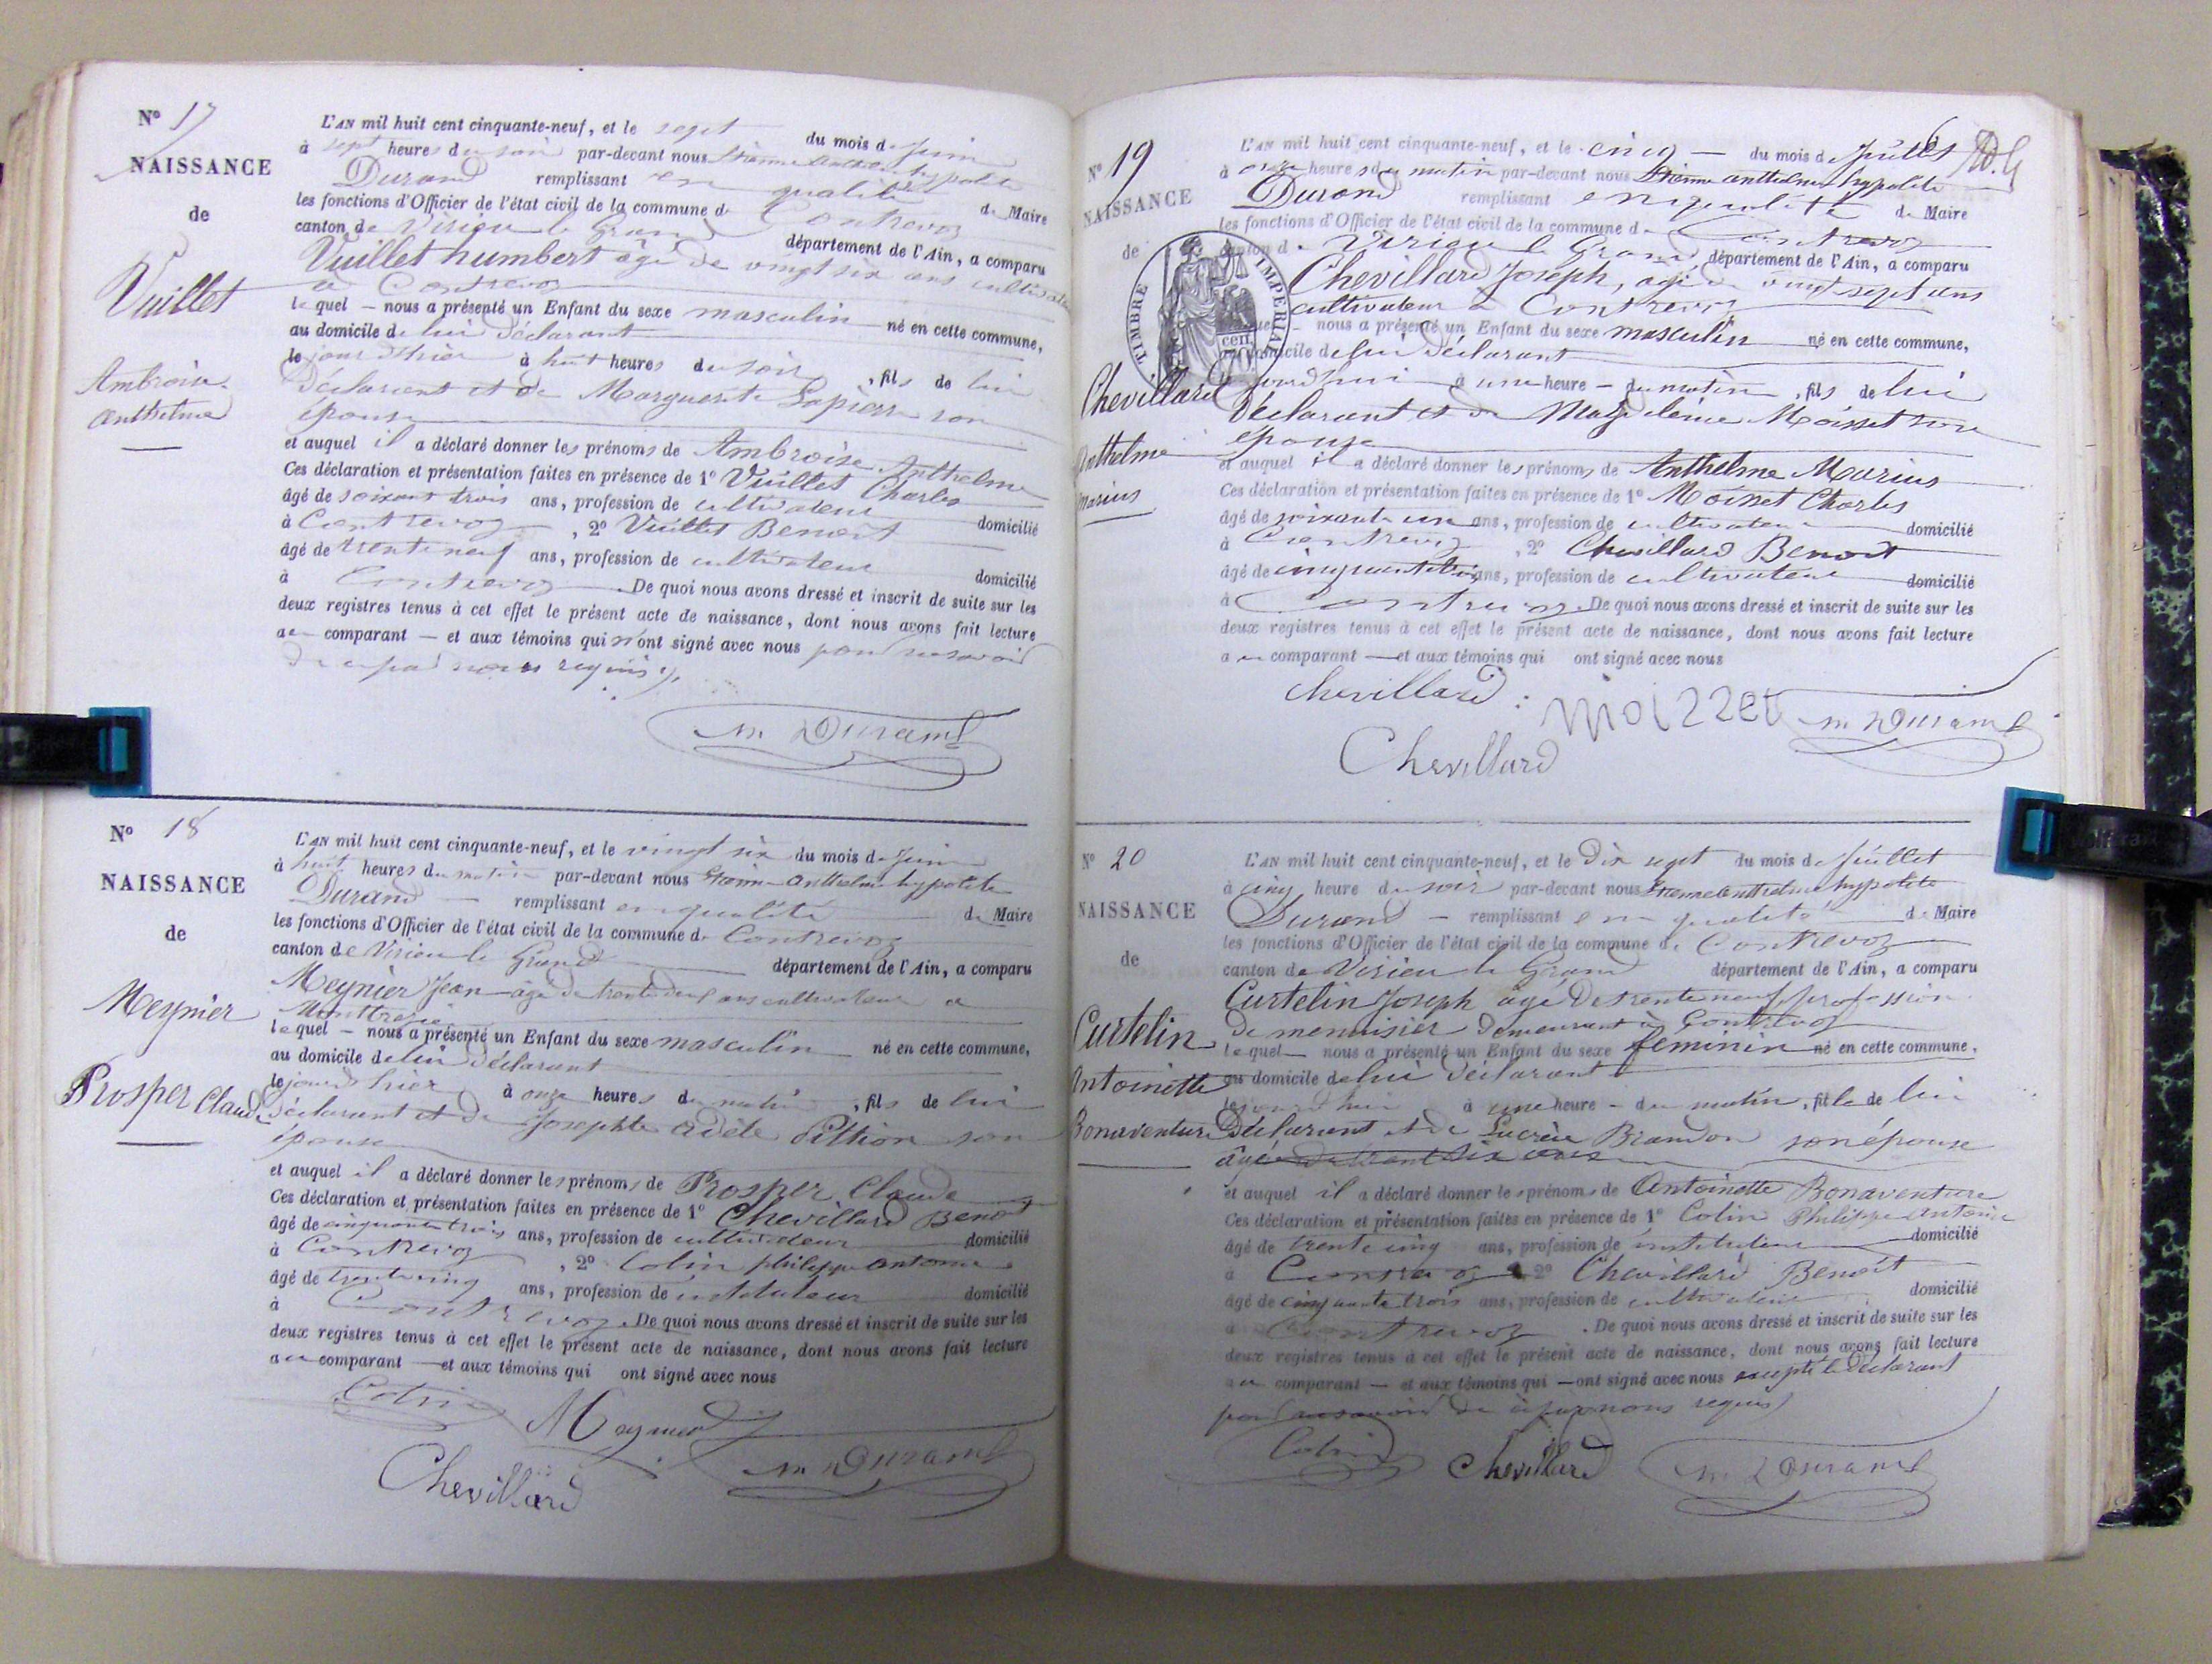 N° 17
NAISSANCE
de
Vuillet
Ambroise
Anthelme
L'AN mil huit cent cinquante-neuf, et le sept du mois de Juin
à sept heures du soir par-devant nous Etienne Anthelme hypolite
Durand remplissant en qualité de Maire
les fonctions d'Officier de l'état civil de la commune de Contrevoz
canton de Virieu le Grand département de l'Ain, a comparu
Vuillet humbert âgé de vingt six ans cultivateur
a Contrevoz
lequel nous a présenté un Enfant du sexe masculin né en cette commune,
au domicile de lui déclarant
le jour d'hier à huit heures du soir, fils de lui
déclarant et de Marguerite Lapierre son
épouse
et auquel il a déclaré donner les prénoms de Ambroise Anthelme
Ces déclaration et présentation faites en présence de 1° Vuillet Charles
âgé de soixante trois ans, profession de cultivateur domicilié
à Contrevoz, 2° Vuillet Benoit
âgé de trente neuf ans, profession de cultivateur domicilié
à Contrevoz. De quoi nous avons dressé et inscrit de suite sur les
deux registres tenus à cet effet le présent acte de naissance, dont nous avons fait lecture
au comparant — et aux témoins qui n'ont signé avec nous pour ne savoir
de ce par nous requis
m Durand
N° 18
NAISSANCE
de
Meynier
Prosper Claude
L'AN mil huit cent cinquante-neuf, et le vingt six du mois de Juin
à huit heures du matin par-devant nous Etienne Anthelme hypolite
Durand — remplissant en qualité de Maire
les fonctions d'Officier de l'état civil de la commune de Contrevoz
canton de Virieu le Grand département de l'Ain, a comparu
Meynier Jean âgé de trente ans cultivateur a
lequel — nous a présenté un Enfant du sexe masculin né en cette commune,
au domicile de lui déclarant
le jour d'hier à onze heures du matin, fils de lui
déclarant et de Josephte Adèle Pittion son
épouse
et auquel il a déclaré donner les prénoms de Prosper Claude
Ces déclaration et présentation faites en présence de 1° Chevillard Benoit
âgé de cinquante trois ans, profession de cultivateur domicilié
à Contrevoz, 2° Colin philippe antoine
âgé de trente cinq ans, profession de instituteur domicilié
à Contrevoz. De quoi nous avons dressé et inscrit de suite sur les
deux registres tenus à cet effet le présent acte de naissance, dont nous avons fait lecture
au comparant — et aux témoins qui ont signé avec nous
Colin Meynier
Chevillard m Durand
6
N° 19
NAISSANCE
de
TIMBRE IMPERIAL
cen
Chevillard
Anthelme
marius
L'AN mil huit cent cinquante-neuf, et le cinq — du mois de Juillet
à onze heures du matin par-devant nous Etienne anthelme hypolite
Durand remplissant en qualité de Maire
les fonctions d'Officier de l'état civil de la commune de Contrevoz
canton de Virieu le Grand département de l'Ain, a comparu
Chevillard Joseph, agé de vingt sept ans
cultivateur à Contrevoz
lequel — nous a présenté un Enfant du sexe masculin né en cette commune,
au domicile de lui déclarant
jourdhui à une heure — du matin, fils de lui
déclarant et de Magdeleine Moisset son
épouse
et auquel il a déclaré donner les prénoms de Anthelme Marius
Ces déclaration et présentation faites en présence de 1° Moisset Charles
âgé de soixante un ans, profession de cultivateur domicilié
à Contrevoz, 2° Chevillard Benoit
âgé de cinquante trois ans, profession de cultivateur domicilié
à Contrevoz. De quoi nous avons dressé et inscrit de suite sur les
deux registres tenus à cet effet le présent acte de naissance, dont nous avons fait lecture
au comparant — et aux témoins qui ont signé avec nous
chevillard moizzet m Durand
Chevillard
N° 20
NAISSANCE
de
Curtelin
Antoinette
Bonaventure
L'AN mil huit cent cinquante-neuf, et le dix sept du mois de Juillet
à cinq heure du soir par-devant nous Etienne Anthelme hypolite
Durand — remplissant en qualité de Maire
les fonctions d'Officier de l'état civil de la commune de Contrevoz
canton de Virieu le Grand département de l'Ain, a comparu
Curtelin Joseph âgé de trente neuf, profession
de menuisier demeurant à Contrevoz
lequel — nous a présenté un Enfant du sexe feminin né en cette commune,
au domicile de lui déclarant
à une heure — du matin, fille de lui
déclarant et de Lucrèce Brandon son épouse
âgée de trente six ans
et auquel il a déclaré donner les prénoms de Antoinette Bonaventure
Ces déclaration et présentation faites en présence de 1° Colin Philippe antoine
âgé de trente cinq ans, profession de instituteur domicilié
à Contrevoz 2° Chevillard Benoît
âgé de cinquante trois ans, profession de cultivateur domicilié
à Contrevoz. De quoi nous avons dressé et inscrit de suite sur les
deux registres tenus à cet effet le présent acte de naissance, dont nous avons fait lecture
au comparant — et aux témoins qui — ont signé avec nous excepté le déclarant
pour ne savoir de ce par nous requis
Colin Chevillard m Durand